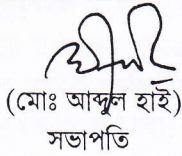 (মোঃ আব্দুল হাই)
সভাপতি